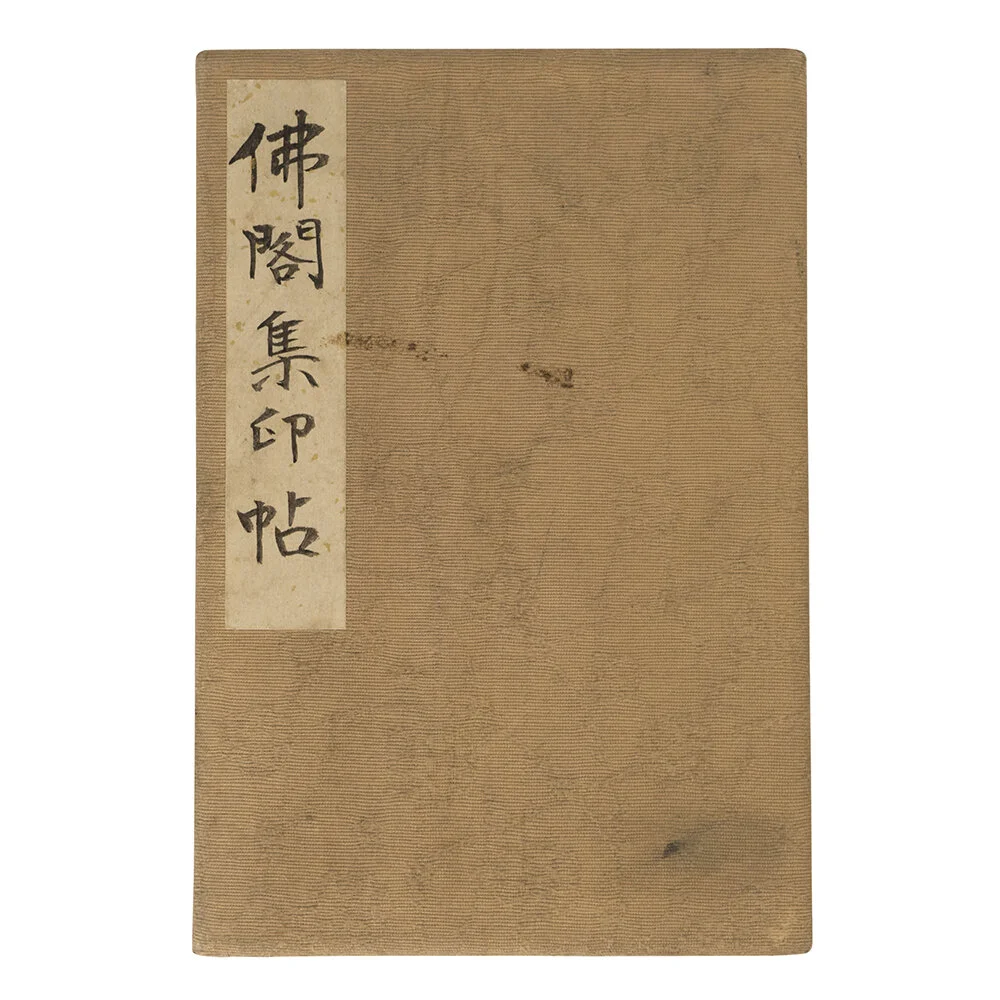 佛閣集印帖